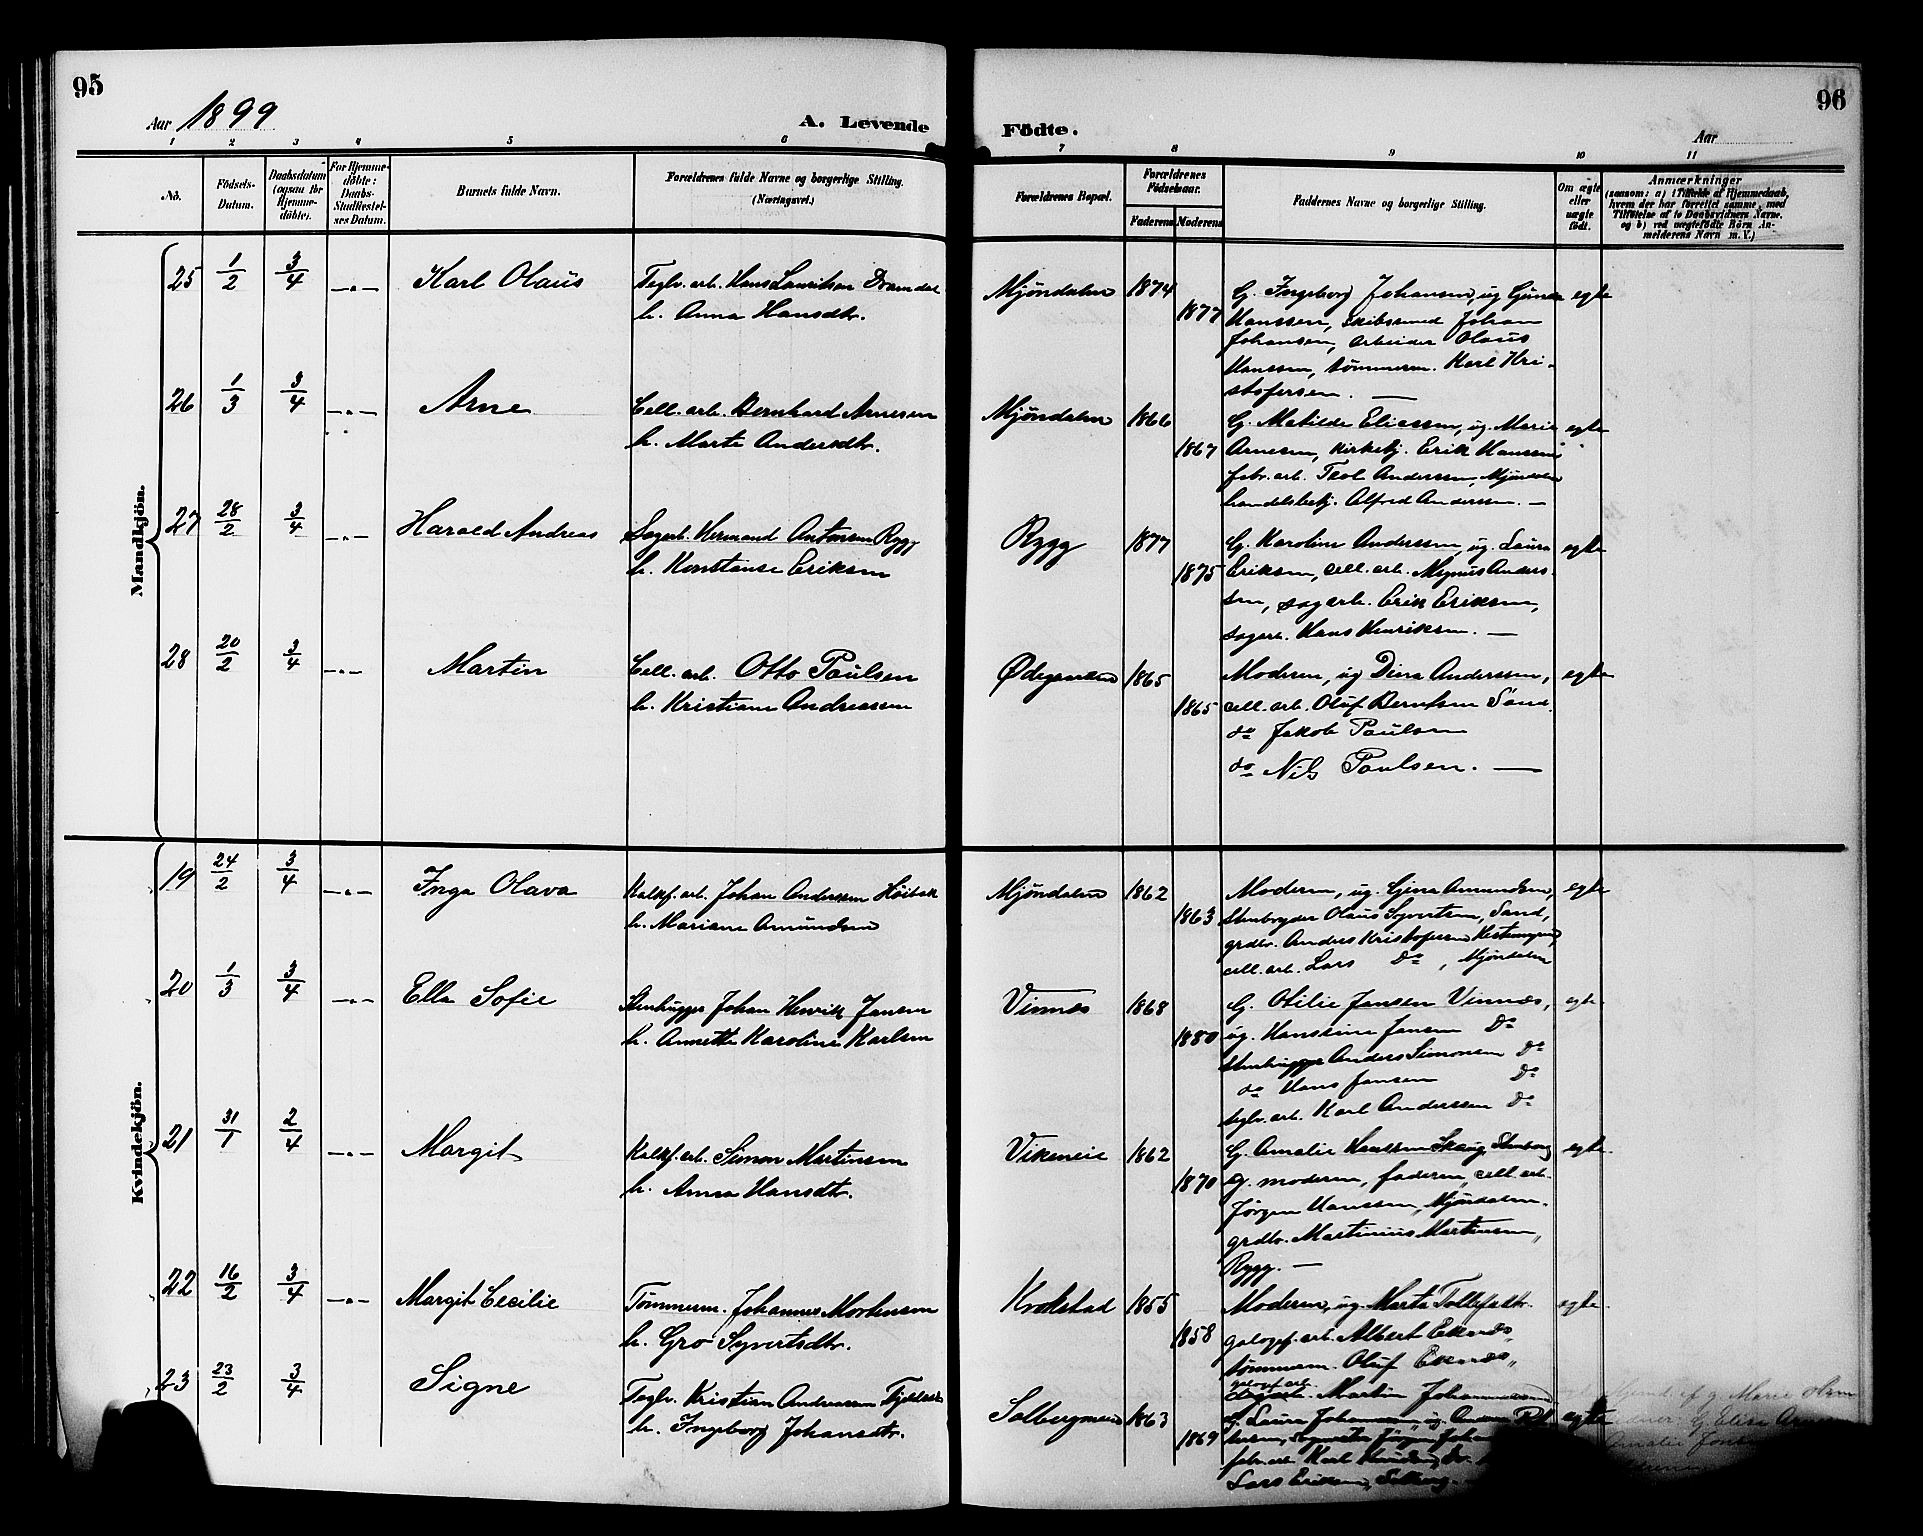 95
96
Aar 1899
A. Levende
Födte.
Aar
1 2 3 4 5 6 7 8 9 10 11
No.
Födsels-
Datum.
Daabsdatum
(ogsaa for
Hjemme-
döbte).
For Hjemme-
döbte:
Daabs-
Stadfæstel-
ses Datum.
Barnets fulde Navn.
Forældrenes fulde Navne og borgerlige Stilling.
(Næringsvei.)
Forældrenes Bopæl.
Forældrenes
Födselsaar.
Faderens Moderens
Faddernes Navne og borgerlige Stilling.
Om ægte
eller
uægte
födt.
Anmærkninger
(saasom: a) i Tilfælde af Hjemmedaab,
hvem der har forrettet samme, med
Tilföielse af to Daabsvidners Navne,
og b) ved uægtefödte Börn An-
melderens Navn m. V.)
Mandkjön.
25 1/2 3/4 -"- Karl Olaus
Teglv. arb. Hans Lauritsen Dramdal
h. Anna Hansdtr.
Mjøndalen 1874 1877
G. Ingeborg Johansen, ug Gunda
Hanssen, skibssmed Johan
Johansen, arbeider Olaus
Hanssen, tømmerm. Karl Kri-
stofersen. —
egte
26 1/3 3/4 -"- Arne
Cell. arb. Bernhard Arnesen
h. Marte Andersdtr.
Mjøndalen 1866 1867
G. Matilde Eliassen, ug. Marie
Arnesen, kirketj. Erik Hanssen
fabr. arb. Teol. Anderssen, Mjøndalen
handelsbetj. Alfred Anderssen. —
egte
27 28/2 3/4 -"- Harald Andreas
Sagarb. Hermand Antonsen Rygg
h. Konstanse Eriksen
Rygg 1877 1875
G. Karoline Anderssen, ug. Laura
Eriksen, cell. arb. Magnus Anders-
sen, sagarb. Erik Eriksen,
sagarb. Hans Henriksen. —
egte
28 20/2 3/4 -"- Martin
Cell. arb. Otto Paulsen
h. Kristiane Andreassen
Ødegaarden 1865 1865
Moderen, ug Dina Anderssen,
cell. arb. Oluf Berntsen Sand.
do Jakob Paulsen
do Nils Paulsen. —
egte
Kvindekjön.
19 24/2 3/4 -"- Inga Olava
Kalkf. arb. Johan Anderssen Høibak
h. Mariane Amundsen
Mjøndalen 1862 1863
Moderen, ug. Gina Amundsen,
Stenbryder Olaus Syvertsen, Sand,
grdbr. Anders Kristofersen
cell. arb. Lars Do, Mjøndalen
egte
20 1/3 3/4 -"- Ella Sofie
Stenhugger Johan Henrik Jansen
h. Annette Karoline Karlsen
Vinnæs 1868 1880
G. Otilie Jansen Vinnæs,
ug. Hanskine Jansen Do
stenhugger Anders Simonsen Do
do Hans Jansen Do
teglv. arb. Karl Anderssen Do
egte
21 31/1 2/4 -"- Margit
Kalkf. arb. Simon Martinsen
h. Anna Hansdtr.
Vikeneie 1862 1870
G. Amalie Hanssen Skaug,
g. moderen, faderen, cell. arb.
Jørgen Hanssen, Mjøndalen.
grdbr. Martinius Martinsen,
Rygg. —
egte
22 16/2 3/4 -"- Margit Cecilie
Tømmerm. Johannes Mortensen
h. Gro Syvertsdtr.
Krokstad 1855 1858
Moderen, ug. Marta Tollefsdtr.
galogef. arb. Albert Ekenæs,
tømmerm. Oluf Ekenæs,
galogef. arb.
Martin Johannessen
egte
23 23/2 3/4 Signe
Teglv. Kristian Andreassen
h. Ingeborg Johansdtr.
Solbergmoen 1863 1869
G. Laura Johansen, ug.
Jørgen
fabr. arb. Karl
Lars Eriksen, Solberg.
egte
g. Marie
G. Elise
Amalie